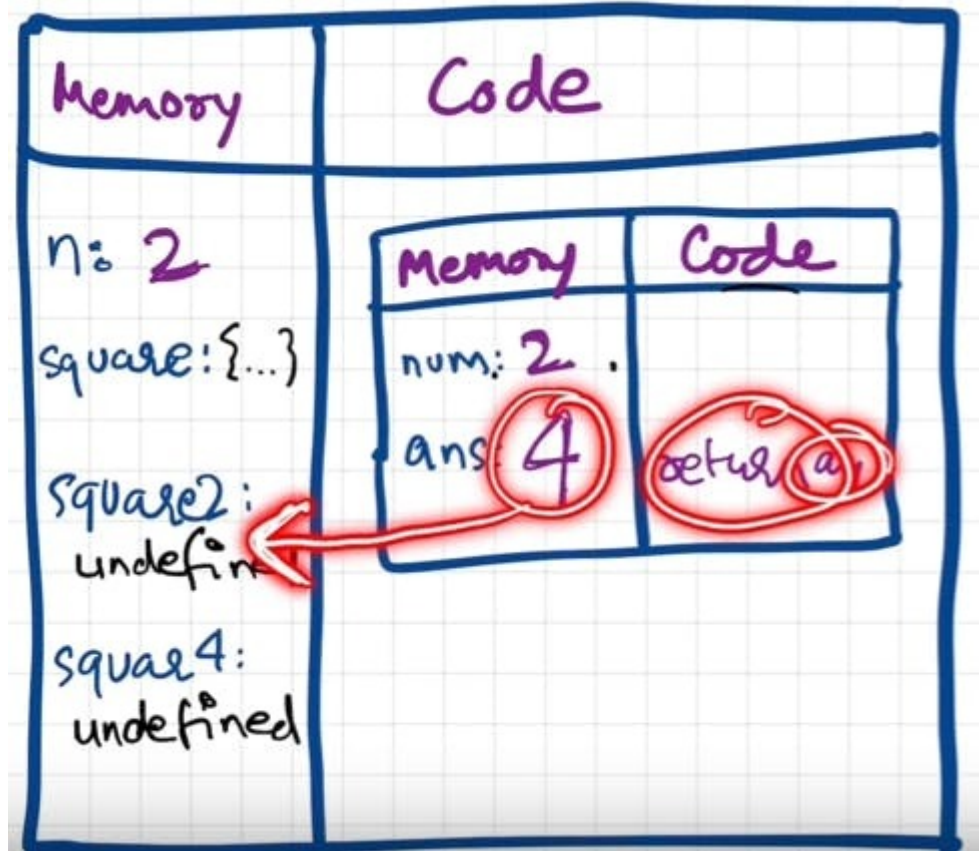 Memory
Code
n: 2
square: {...}
square2:
undefin
squar4:
undefined
Memory
Code
num: 2 .
ans: 4
return a